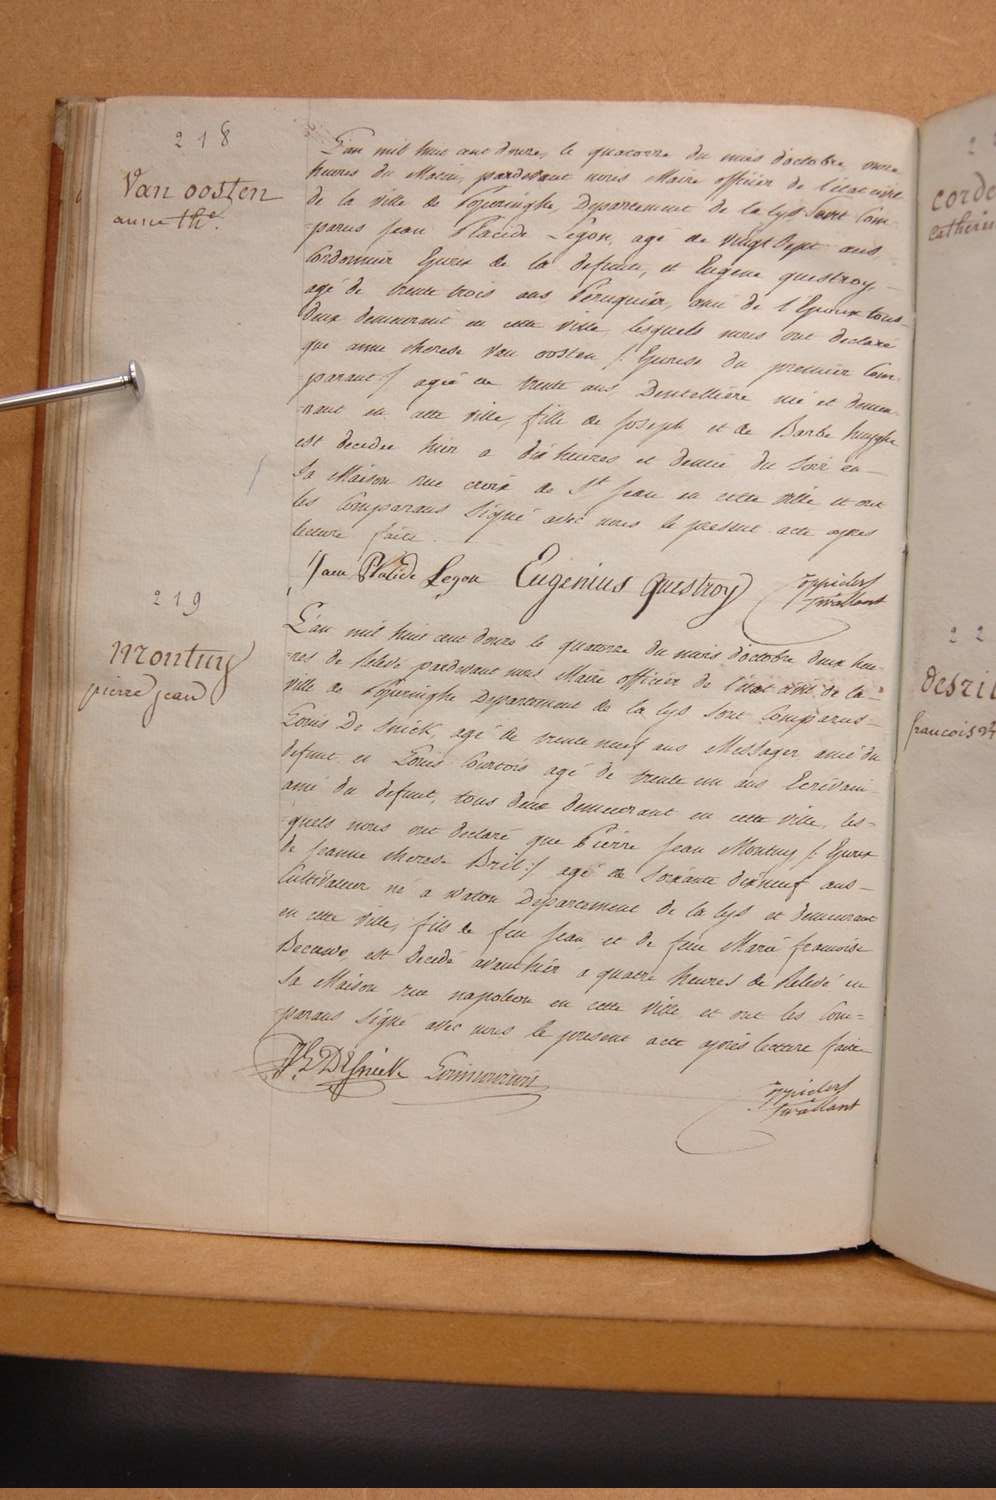 218
Van oosten
anne the.
L'an mil huit cent douze, le quatorze du mois d'octobre, onze
heures du Matin, pardevant nous Maire officier de l'état civil
de la ville de Poperinghe, Departement de la Lys Sont Com-
-parus Jean Placide Legon, agé de vingt sept ans,
Cordonnier Epoux de la defunte, et Eugene questroy-
agé de trente trois ans Peruquier, ami de l'Epoux tous-
deux demeurant en cette ville, lesquels nous ont declaré
que anne therese Van oosten /: Epouse du premier Com-
parant :/ agée de trente ans, Dentellière née et demeu-
-rant en cette ville, fille de Joseph et de Barbe huyghe
est decedée hier a dix heures et demie du Soir en-
Sa Maison rue croix de St Jean en cette ville et ont
les Comparans Signé avec nous le present acte apres
lecture faite.
Jean Placide Legon Eugenius Questroy
219
Montuy
pierre Jean
L'an mil huit cent douze le quatorze du mois d'octobre deux heu-
-res de Relevé pardevant nous Maire officier de l'état civil de la-
ville de Poperinghe Departement de la Lys Sont Comparus-
Louis De Snick, agé de trente neuf ans Messager ami du
defunt et Louis Courtois agé de trente un ans Ecrivain-
ami du defunt, tous deux demeurant en cette ville, les-
-quels nous ont declaré que Pierre Jean Montuy /: Epoux
de Jeanne therese Bril :/ agé de Soixante dixneuf ans-
Cultivateur né a Watou Departement de la Lys et demeurant
en cette ville, fils de feu Jean et de feue Marie francoise
Decauw, est decedé avanthier a quatre heures de Relevé en
Sa Maison rue napoleon en cette ville et ont les Com=
-parans Signé avec nous le present acte après lecture faite
DeSnick
22
desril
francois
corde
catherin